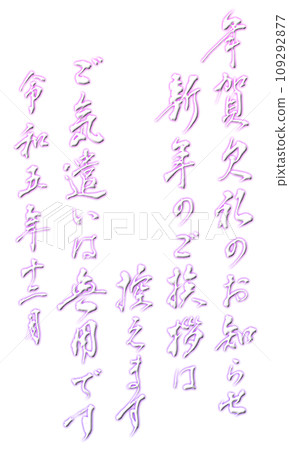 年賀欠礼のお知らせ
新年のご挨拶は
控えます
ご気遣いは無用です
令和五年十二月
109292877